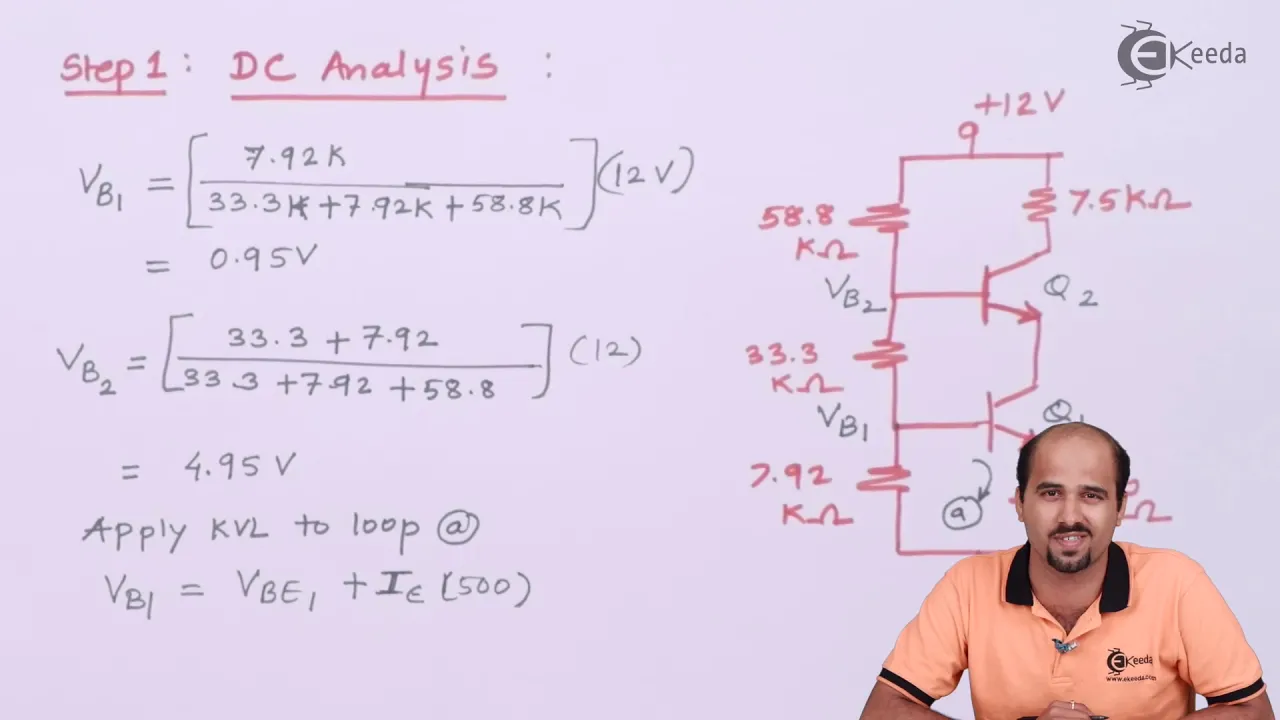 Step 1 : DC Analysis :
V_B1 = [ 7.92K / 33.3K + 7.92K + 58.8K ] (12 V)
= 0.95V
V_B2 = [ 33.3 + 7.92 / 33.3 + 7.92 + 58.8 ] (12)
= 4.95 V
Apply KVL to loop ⓐ
V_B1 = V_BE1 + I_E (500)
EKeeda
+12 V
7.5KΩ
58.8
KΩ
V_B2
Q2
33.3
KΩ
V_B1
Q1
7.92
KΩ
ⓐ
Ω
EKeeda
www.ekeeda.com